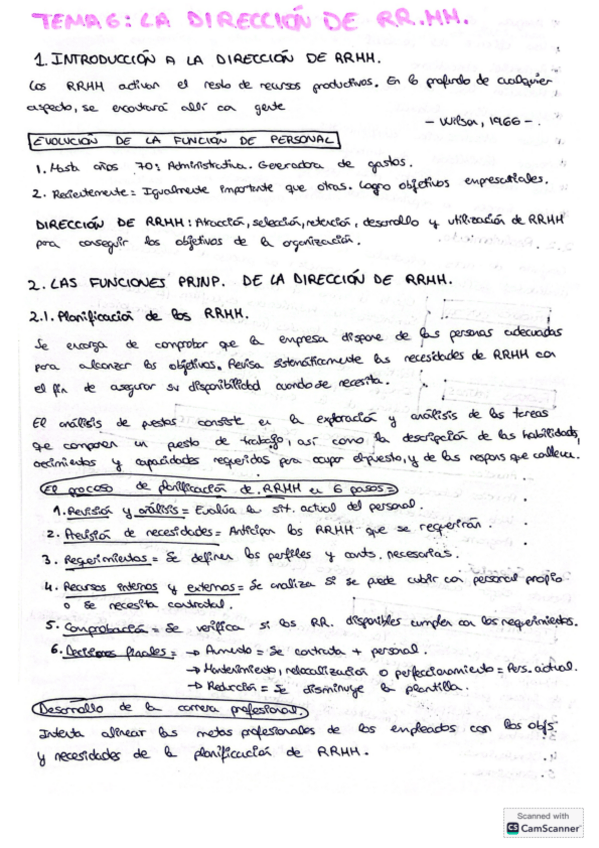 TEMA 6: LA DIRECCIÓN DE RR.HH.
1. INTRODUCCIÓN A LA DIRECCIÓN DE RRHH.
Los RRHH activan el resto de recursos productivos. En lo profundo de cualquier
aspecto, se encontrará allí con gente
- Wilson, 1966 -.
EVOLUCIÓN DE LA FUNCIÓN DE PERSONAL
1. Hasta años 70: Administrativa. Generadora de gastos.
2. Recientemente = Igualmente importante que otras. Logro objetivos empresariales.
DIRECCIÓN DE RRHH: Atracción, selección, retención, desarrollo y utilización de RRHH
para conseguir los objetivos de la organización.
2. LAS FUNCIONES PRINP. DE LA DIRECCIÓN DE RRHH.
2.1. Planificación de los RRHH.
Se encarga de comprobar que la empresa dispone de las personas adecuadas
para alcanzar los objetivos. Revisa sistemáticamente las necesidades de RRHH con
el fin de asegurar su disponibilidad cuando se necesita.
El análisis de puestos consiste en la exploración y análisis de las tareas
que componen un puesto de trabajo, así como la descripción de las habilidades,
conocimientos y capacidades requeridas para ocupar el puesto, y de las respons que conlleva.
El proceso de planificación de RRHH en 6 pasos =
1. Revisión y análisis = Evalúa la sit. actual del personal.
2. Previsión de necesidades = Anticipar los RRHH que se requerirán.
3. Requerimientos = Se definen los perfiles y cants. necesarias.
4. Recursos internos y externos = Se analiza si se puede cubrir con personal propio
o se necesita contratal.
5. Comprobación = Se verifica si los RR. disponibles cumplen con los requerimientos.
6. Decisiones finales = → Aumento = Se contrata + personal.
→ Mantenimiento, relocalización o perfeccionamiento = Pers. actual.
→ Reducción = Se disminuye la plantilla.
Desarrollo de la carrera profesional.
Intenta alinear las metas profesionales de los empleados con los objs.
y necesidades de la planificación de RRHH.
Scanned with
CS CamScanner